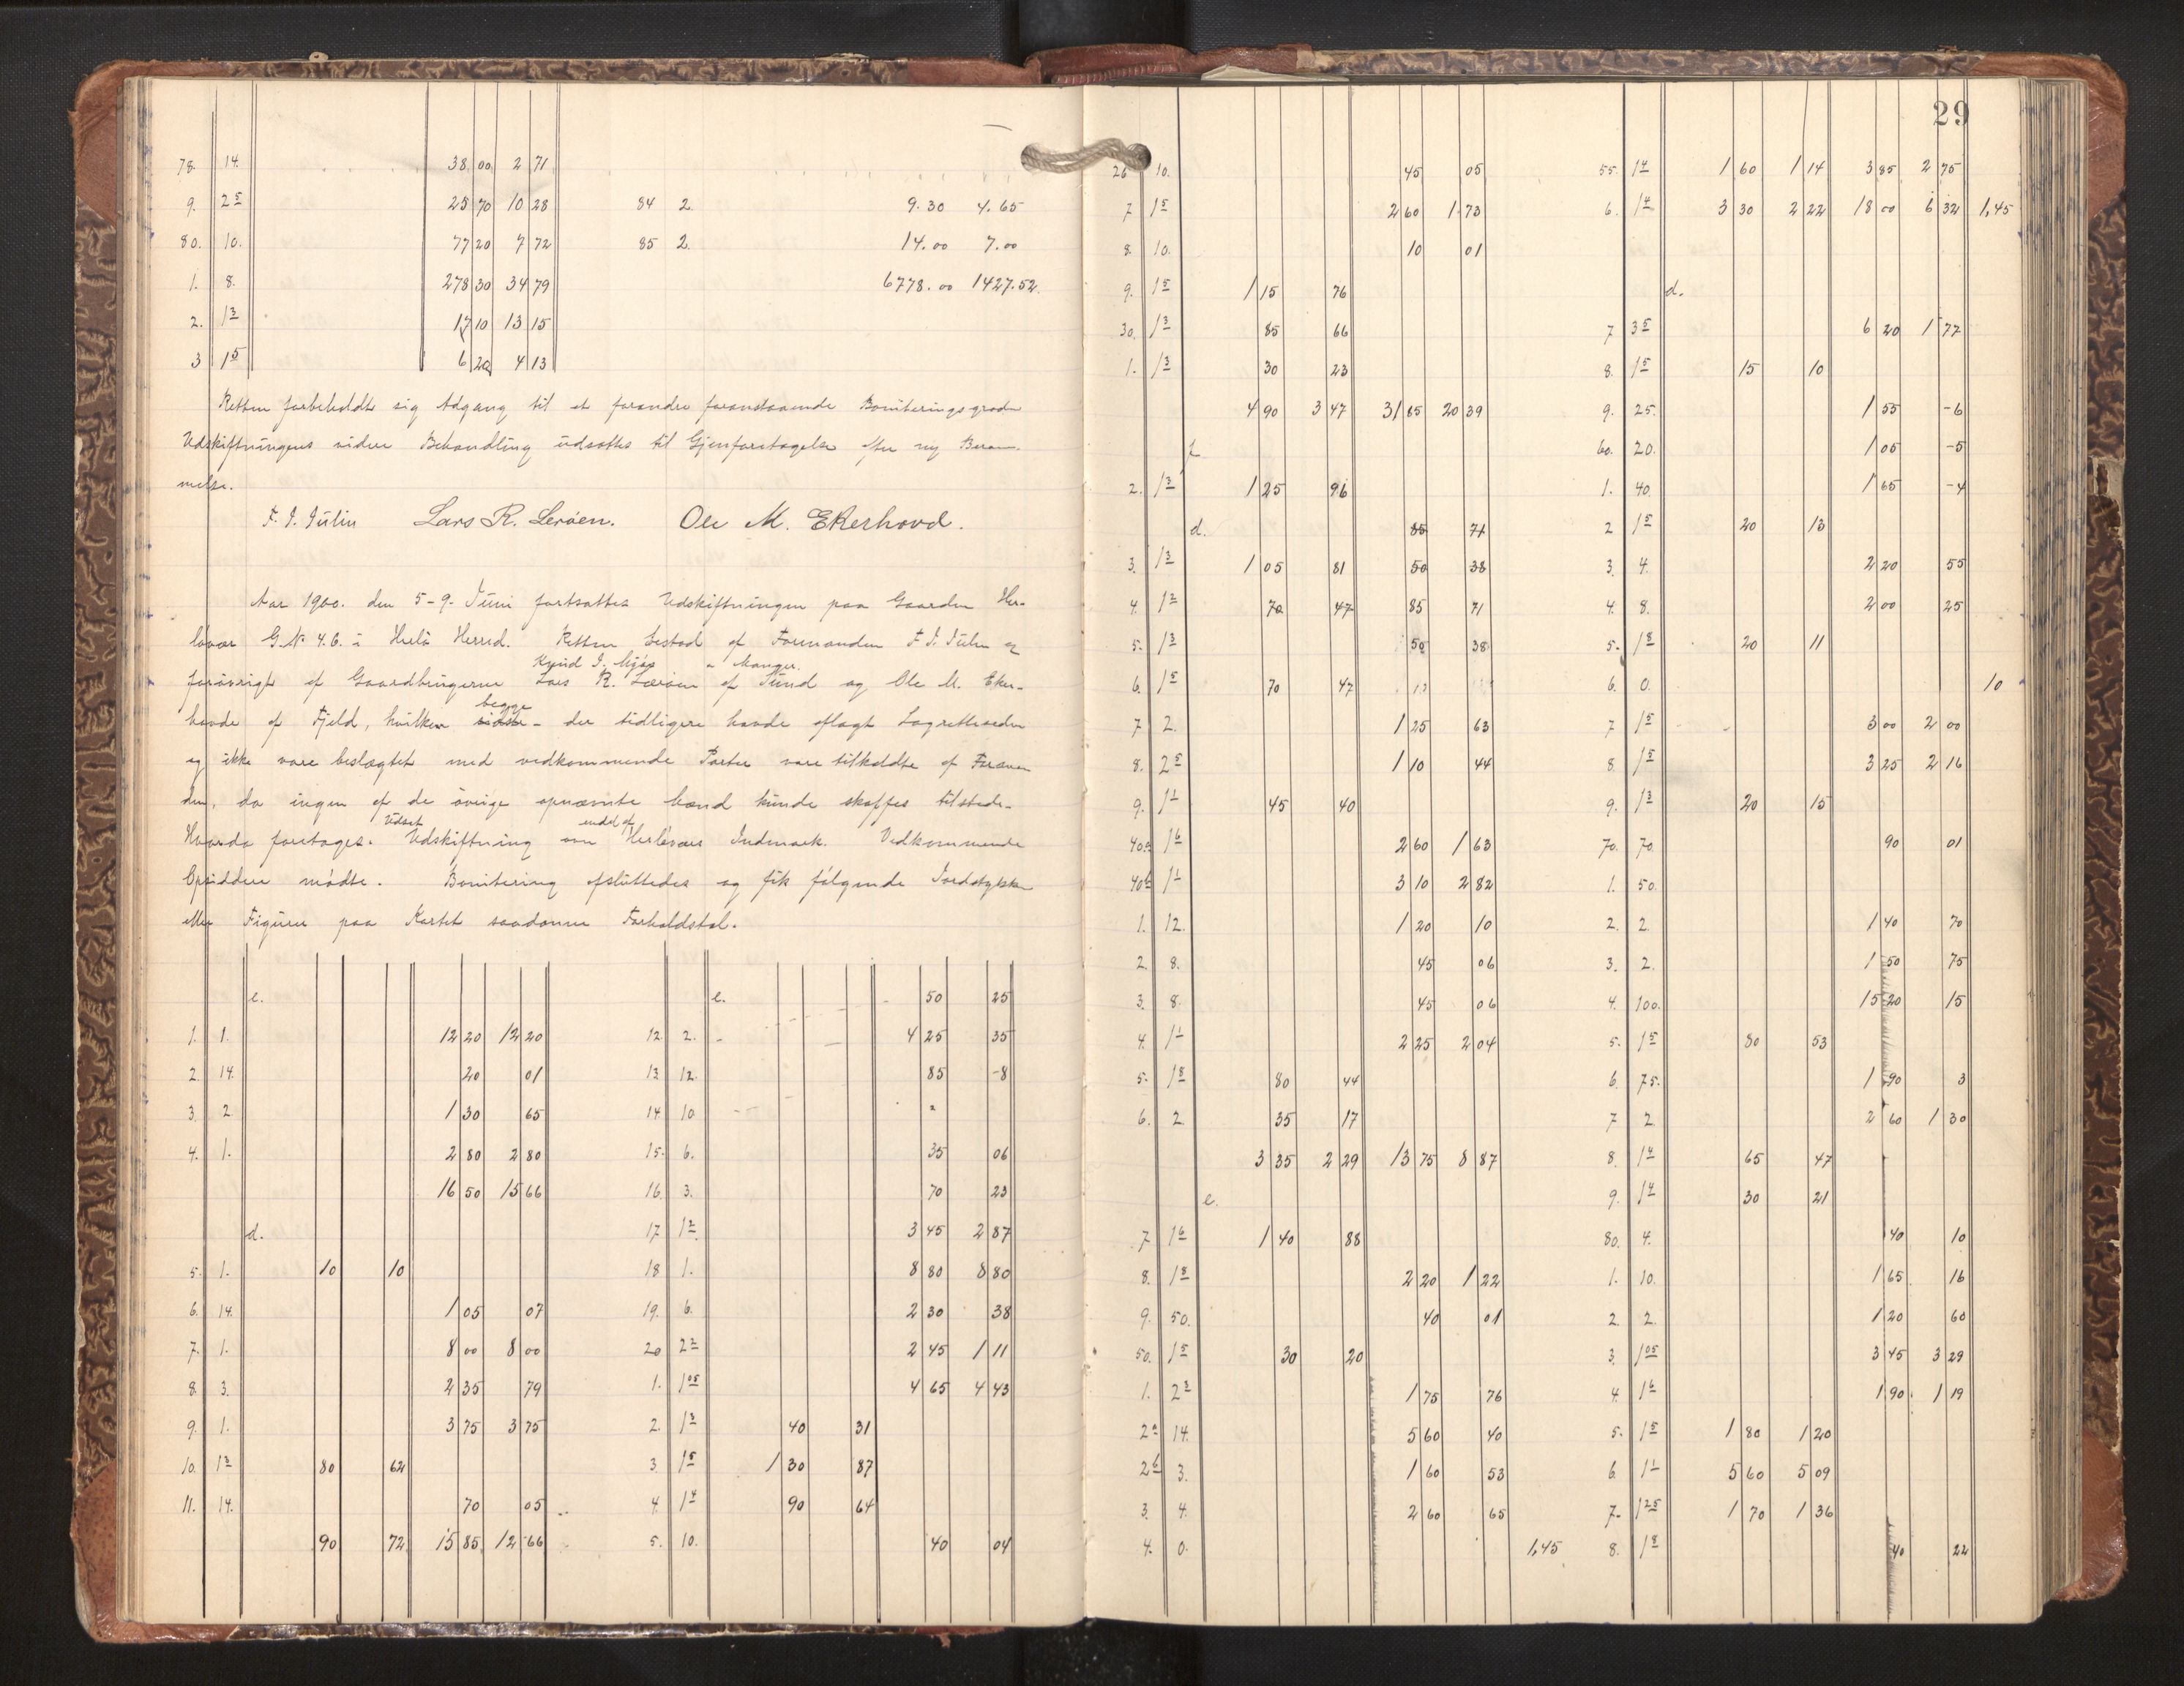 78. 14. 38 00 2 71
9. 2 5 25 70 10 28 84 2. 9.30 4.65
80. 10. 77 20 7 72 85 2. 14.00 7.00
1. 8. 278 30 34 79 6778.00 1427.52.
2. 1 3 17 10 13 15
3 1 5 6 20 4 13
Retten forbeholdt sig Adgang til at forandre foranstaaende Boniteringsgrader
Udskiftningens videre Behandling udsattes til Gjenforetagelse efter ny Beram-
melse.
F. J. Julin Lars R. Leröen. Ole M. Ekerhovd.
Aar 1900. den 5-9. Juni fortsattes Udskiftningen paa Gaarden Her-
løvær G.N. 46. i Herlø Herred. Retten bestod af Formanden F. J. Julin og
Knud J. Mjøs Manger.
forövrigt af Gaardbrugerne Lars R. Leröen af Sund og Ole M. Eker-
begge
havde af Fjeld, hvilken sidste - der tidligere havde aflagt Lagretteseden
og ikke vare beslægtet med vedkommende Parter vare tilkaldte af Forman
den, da ingen af de övrige opnævnte Mænd kunde skaffes tilstede.
Udsat endel af
Hvorda foretages. Udskiftning Herløvær Indmark. Vedkommende
Opsiddere mödte. Bonitering afsluttedes og fik fölgende Jordstykker
eller Figurer paa Kartet saadanne Forholdstal.
e. e. 50 25
1. 1. 12 20 12 20 12 2. 4 25 35
2. 14. 20 01 13 12. 85 -8
3. 2 1 30 65 14 10
4. 1. 2 80 2 80 15. 6. 35 06
16 50 15 66 16. 3. 70 23
d. 17 1 2 3 45 2 87
5. 1. 10 10 18 1. 8 80 8 80
6. 14. 1 05 07 19. 6. 2 30 38
7. 1. 8 00 8 00 20 2 2 2 45 1 11
8. 3. 2 35 79 1. 1 05 4 65 4 43
9. 1. 3 75 3 75 2. 1 3 40 31
10. 1 3 80 62 3. 1 5 1 30 87
11. 14. 70 05 4. 1 4 90 64
90 72 15 85 12 66 5. 10. 40 04
29
26 10. 45 05 55. 1 4 1 60 1 14 3 85 2 75
7 1 5 2 60 1 73 6. 1 4 3 30 2 22 18 00 6 32 1,45
8. 10. 10 01
9. 1 5 1 15 76 d.
30. 1 3 85 66 7 3 5 6 20 1 77
1. 1 3 30 23 8. 1 5 15 10
4 90 3 47 31 85 20 39 9. 25. 1 55 -6
60. 20. 1 05 -5
2. 1 3 1 25 96 1. 40. 1 65 -4
d. 85 71 2 1 5 20 13
3. 1 3 1 05 81 50 38 3. 4. 2 20 55
4. 1 2 70 47 85 71 4. 8. 2 00 25
5. 1 3 50 38 5. 1 8 20 11
6. 1 5 70 47 6. 0. 10
7 2. 1 25 63 7 1 5 3 00 2 00
8. 2 5 1 10 44 8. 1 5 3 25 2 16
9. 1 1 45 40 9. 1 3 20 15
40a 1 6 2 60 1 63 70. 70. 90 01
40b 1 1 3 10 2 82 1. 50.
1. 12. 1 20 10 2. 2. 1 40 70
2. 8. 45 06 3. 2. 1 50 75
3. 8. 45 06 4. 100. 15 20 15
4. 1 1 2 25 2 04 5. 1 5 80 53
5. 1 8 80 44 6. 75. 1 90 3
6. 2. 35 17 7 2. 2 60 1 30
3 35 2 29 13 75 8 87 8. 1 4 65 47
e. 9. 1 4 30 21
7 1 6 1 40 88 80. 4. 40 10
8. 1 8 2 20 1 22 1. 10. 1 65 16
9. 50. 40 01 2. 2. 1 20 60
50. 1 5 30 20 3. 1 05 3 45 3 29
1. 2 3 1 75 76 4. 1 6 1 90 1 19
2a 14. 5 60 40 5. 1 5 1 80 1 20
2b 3. 1 60 53 6. 1 1 5 60 5 09
3. 4. 2 60 65 7. 1 25 1 70 1 36
4. 0. 1,45 8. 1 8 40 22